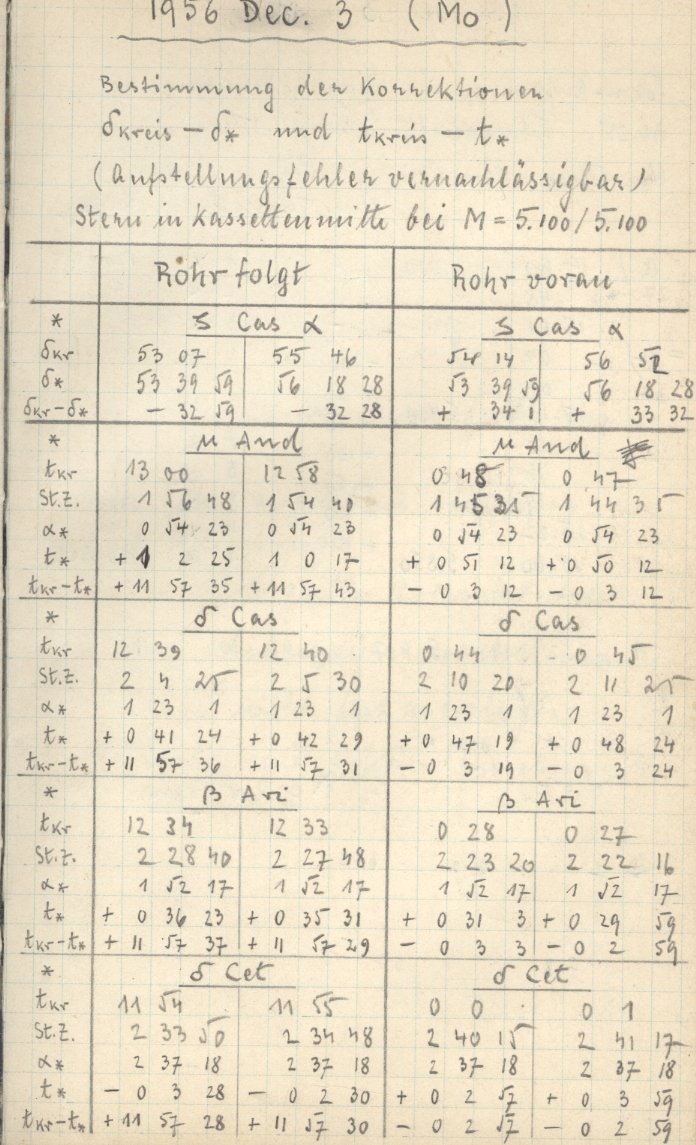 1956 Dec. 3 (Mo)
Bestimmung der Korrektionen
δkreis – δ* und tkreis – t*
(Aufstellungsfehler vernachlässigbar)
Stern in Kassettenmitte bei M = 5.100/5.100
Rohr folgt Rohr voran
* ζ Cas α ζ Cas α
δkr 53 07 55 46 54 14 56 52
δ* 53 39 59 56 18 28 53 39 59 56 18 28
δkr–δ* – 32 59 – 32 28 + 34 1 + 33 32
* μ And μ And
tkr 13 00 12 58 0 48 0 47
St.Z. 1 56 48 1 54 40 1 45 35 1 44 35
α* 0 54 23 0 54 23 0 54 23 0 54 23
t* + 1 2 25 1 0 17 + 0 51 12 + 0 50 12
tkr–t* + 11 57 35 + 11 57 43 – 0 3 12 – 0 3 12
* δ Cas δ Cas
tkr 12 39 12 40 0 44 0 45
St.Z. 2 4 25 2 5 30 2 10 20 2 11 25
α* 1 23 1 1 23 1 1 23 1 1 23 1
t* + 0 41 24 + 0 42 29 + 0 47 19 + 0 48 24
tkr–t* + 11 57 36 + 11 57 31 – 0 3 19 – 0 3 24
* β Ari β Ari
tkr 12 34 12 33 0 28 0 27
St.Z. 2 28 40 2 27 48 2 23 20 2 22 16
α* 1 52 17 1 52 17 1 52 17 1 52 17
t* + 0 36 23 + 0 35 31 + 0 31 3 + 0 29 59
tkr–t* + 11 57 37 + 11 57 29 – 0 3 3 – 0 2 59
* δ Cet δ Cet
tkr 11 54 11 55 0 0 0 1
St.Z. 2 33 50 2 34 48 2 40 15 2 41 17
α* 2 37 18 2 37 18 2 37 18 2 37 18
t* – 0 3 28 – 0 2 30 + 0 2 57 + 0 3 59
tkr–t* + 11 57 28 + 11 57 30 – 0 2 57 – 0 2 59